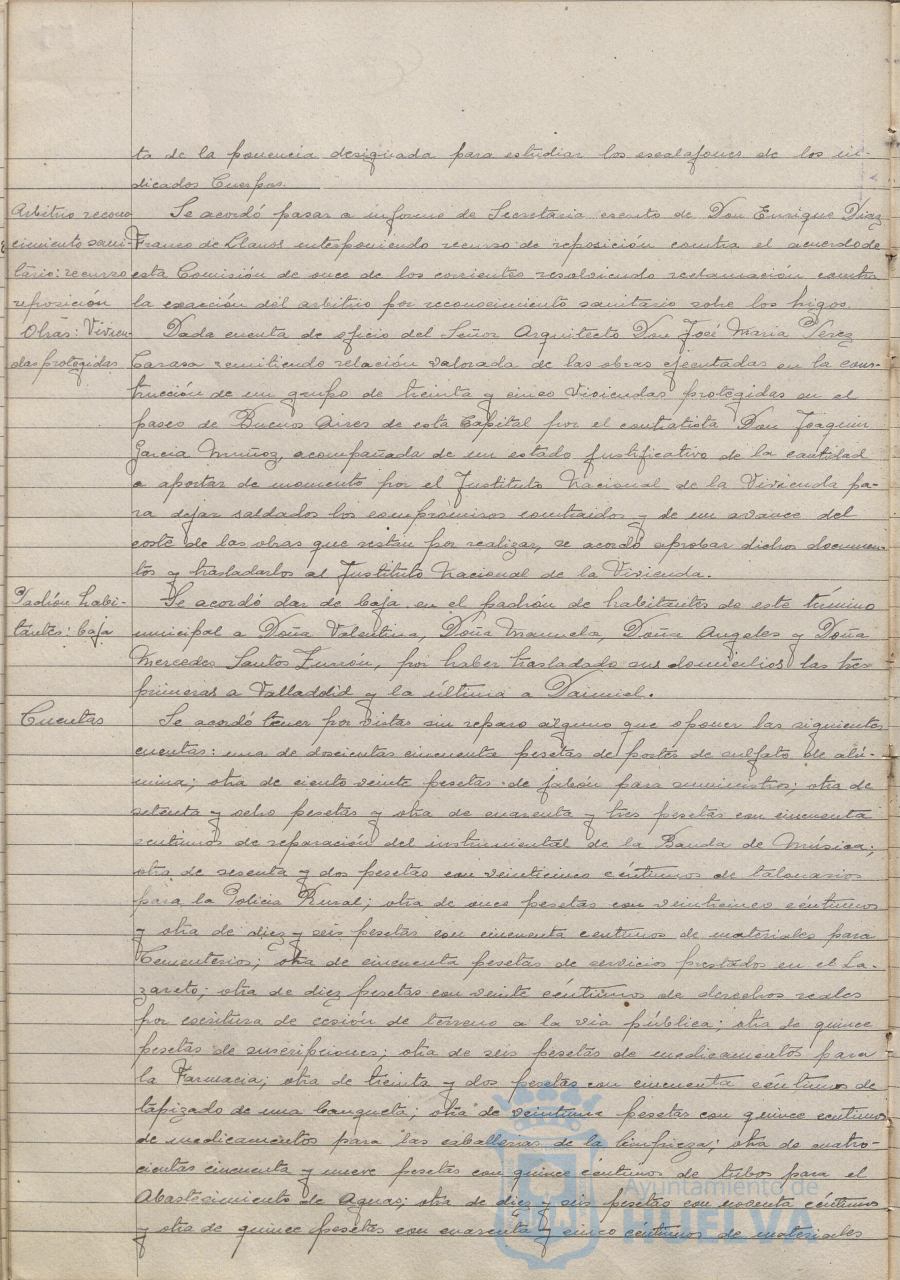 ta de la ponencia designada para estudiar los escalafones de los in-
dicados Cuerpos.
Arbitrio recono
cimiento sani-
tario: recurso
reposición
Se acordó pasar a informe de Secretaria escrito de Don Enrique Diaz
Franco de Llanos interponiendo recurso de reposición contra el acuerdo de
esta Comisión de once de los corrientes resolviendo reclamación contra
la exacción del arbitrio por reconocimiento sanitario sobre los higos.
Obras: Vivien-
das protegidas
Dada cuenta de oficio del Señor Arquitecto Don José Maria Perez
Carasa remitiendo relación valorada de las obras ejecutadas en la cons-
trucción de un grupo de treinta y cinco Viviendas protegidas en el
paseo de Buenos Aires de esta Capital por el contratista Don Joaquin
Garcia Muñoz, acompañada de un estado justificativo de la cantidad
a aportar de momento por el Instituto Nacional de la Vivienda pa-
ra dejar saldados los compromisos contraidos y de un avance del
coste de las obras que restan por realizar, se acordó aprobar dichos documen-
tos y trasladarlos al Instituto Nacional de la Vivienda.
Padrón habi-
tantes: baja
Se acordó dar de baja en el padrón de habitantes de este término
municipal a Doña Valentina, Doña Manuela, Doña Angeles y Doña
Mercedes Santos Zurrón, por haber trasladado sus domicilios las tres
primeras a Valladolid y la última a Daimiel.
Cuentas
Se acordó tener por vistas sin reparo alguno que oponer las siguientes
cuentas: una de doscientas cincuenta pesetas de portes de sulfato de alú-
mina; otra de ciento veinte pesetas de jabón para suministros; otra de
setenta y ocho pesetas y otra de cuarenta y tres pesetas con cincuenta
centimos de reparación del instrumental de la Banda de Música;
otra de sesenta y dos pesetas con veinticinco céntimos de talonarios
para la Policia Rural; otra de once pesetas con veinticinco céntimos
y otra de diez y seis pesetas con cincuenta centimos de materiales para
Cementerios; otra de cincuenta pesetas de servicios prestados en el La-
zareto; otra de diez pesetas con veinte céntimos de derechos reales
por escritura de cesión de terreno a la via pública; otra de quince
pesetas de suscripciones; otra de seis pesetas de medicamentos para
la Farmacia; otra de treinta y dos pesetas con cincuenta céntimos de
tapizado de una banqueta; otra de veintiuna pesetas con quince centimos
de medicamentos para las caballerias de la limpieza; otra de cuatro-
cientas cincuenta y nueve pesetas con quince céntimos de tubos para el
Abastecimiento de Aguas; otra de diez y seis pesetas con noventa céntimos
y otra de quince pesetas con cuarenta y cinco centimos de materiales
Ayuntamiento de
HUELVA